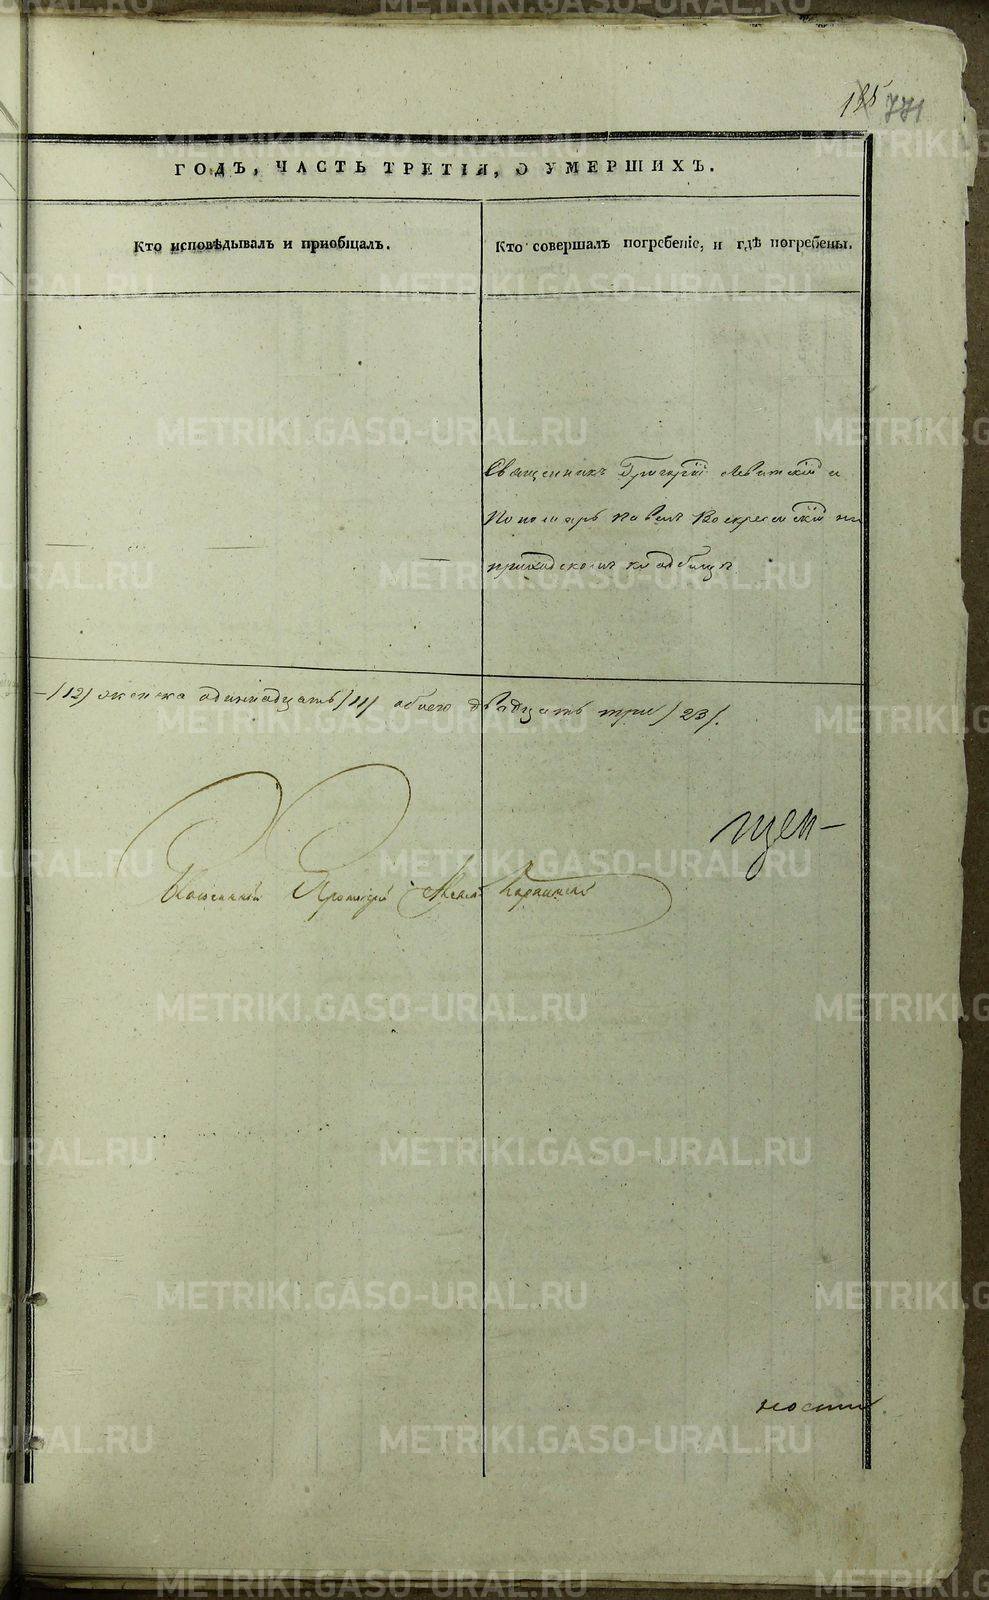 135 771
ГОДЪ, ЧАСТЬ ТРЕТІЯ, О УМЕРШИХЪ.
Кто исповѣдывалъ и пріобщалъ.
Кто совершалъ погребеніе, и гдѣ погребены.
Священникъ Григорій Левитскій и
Пономарь Павелъ Воскресенскій на
приходскомъ кладбищѣ
— /12/ женска одиннадцать /11/ обоего двадцать три /23/.
щен-
Протоіерей
ности
METRIKI.GASO-URAL.RU